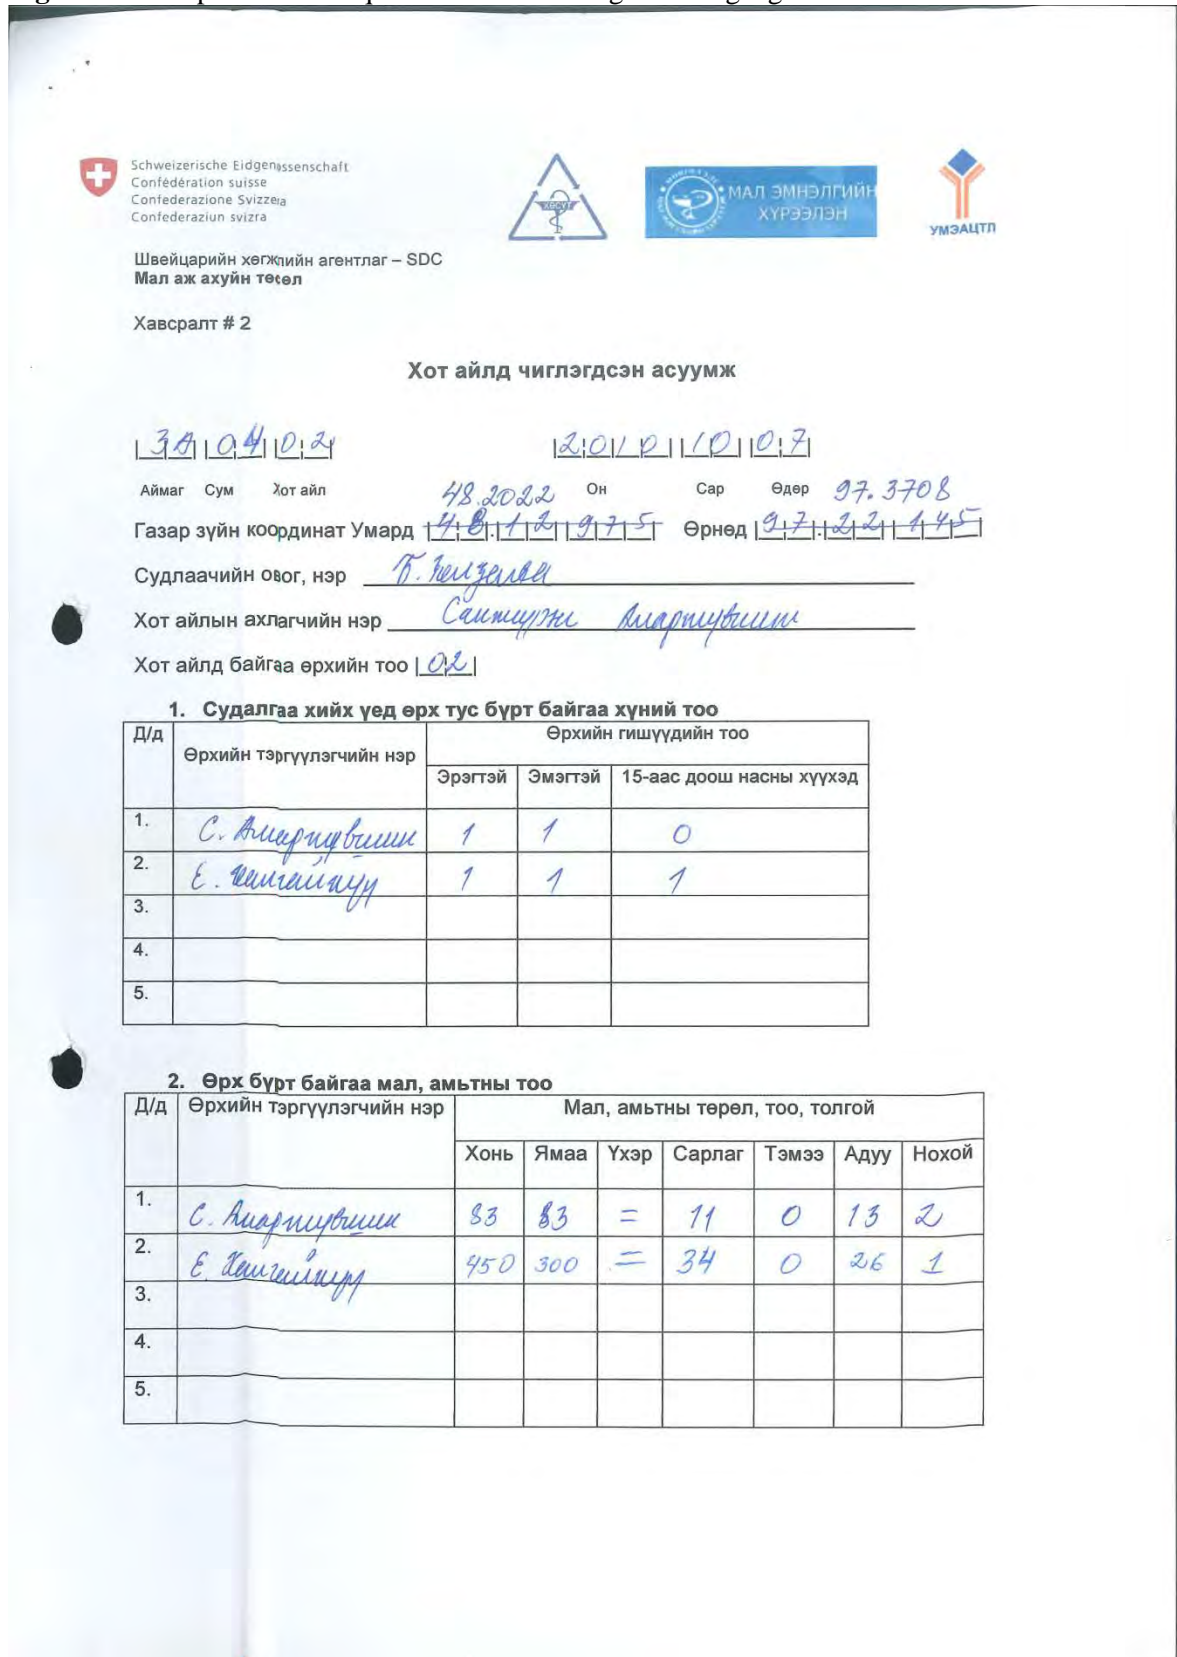 Schweizerische Eidgenossenschaft
Confédération suisse
Confederazione Svizzera
Confederaziun svizra
ХӨСҮТ
МАЛ ЭМНЭЛГИЙН
ХҮРЭЭЛЭН
УМЭАЦТЛ
Швейцарийн хөгжлийн агентлаг – SDC
Мал аж ахуйн төсөл
Хавсралт # 2
Хот айлд чиглэгдсэн асуумж
04 02 2010 10 07
Аймаг Сум Хот айл Он Сар Өдөр
48.2022 97.3708
Газар зүйн координат Умард 48.12 975 Өрнөд 97.22 145
Судлаачийн овог, нэр Б.
Хот айлын ахлагчийн нэр Амартүвшин
Хот айлд байгаа өрхийн тоо 02
1. Судалгаа хийх үед өрх тус бүрт байгаа хүний тоо
Д/д Өрхийн тэргүүлэгчийн нэр Өрхийн гишүүдийн тоо
Эрэгтэй Эмэгтэй 15-аас доош насны хүүхэд
1. С. Амартүвшин 1 1 0
2. Е. 1 1 1
3.
4.
5.
2. Өрх бүрт байгаа мал, амьтны тоо
Д/д Өрхийн тэргүүлэгчийн нэр Мал, амьтны төрөл, тоо, толгой
Хонь Ямаа Үхэр Сарлаг Тэмээ Адуу Нохой
1. С. Амартүвшин 83 83 = 11 0 13 2
2. Е. 450 300 = 34 0 26 1
3.
4.
5.